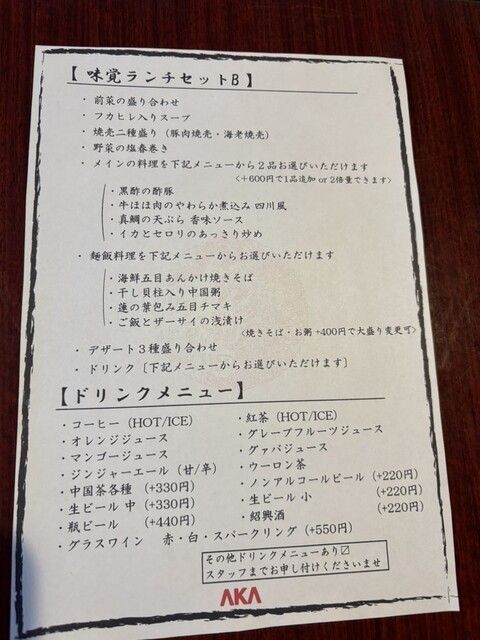 【 味覚ランチセットB 】
・ 前菜の盛り合わせ
・ フカヒレ入りスープ
・ 焼売二種盛り（豚肉焼売・海老焼売）
・ 野菜の塩春巻き
・ メインの料理を下記メニューから２品お選びいただけます
＜＋600円で1品追加 or 2倍量できます＞
・黒酢の酢豚
・牛ほほ肉のやわらか煮込み 四川風
・真鯛の天ぷら 香味ソース
・イカとセロリのあっさり炒め
・ 麺飯料理を下記メニューからお選びいただけます
・海鮮五目あんかけ焼きそば
・干し貝柱入り中国粥
・蓮の葉包み五目チマキ
・ご飯とザーサイの浅漬け
＜焼きそば・お粥 +400円で大盛り変更可＞
・ デザート３種盛り合わせ
・ ドリンク［下記メニューからお選びいただけます］
【ドリンクメニュー】
・コーヒー（HOT/ICE）
・オレンジジュース
・マンゴージュース
・ジンジャーエール（甘/辛）
・中国茶各種 （+330円）
・生ビール 中 （+330円）
・瓶ビール （+440円）
・紅茶（HOT/ICE）
・グレープフルーツジュース
・グァバジュース
・ウーロン茶
・ノンアルコールビール（+220円）
・生ビール 小 （+220円）
・紹興酒 （+220円）
・グラスワイン 赤・白・スパークリング（+550円）
その他ドリンクメニューあり〼
スタッフまでお申し付けくださいませ
AKA